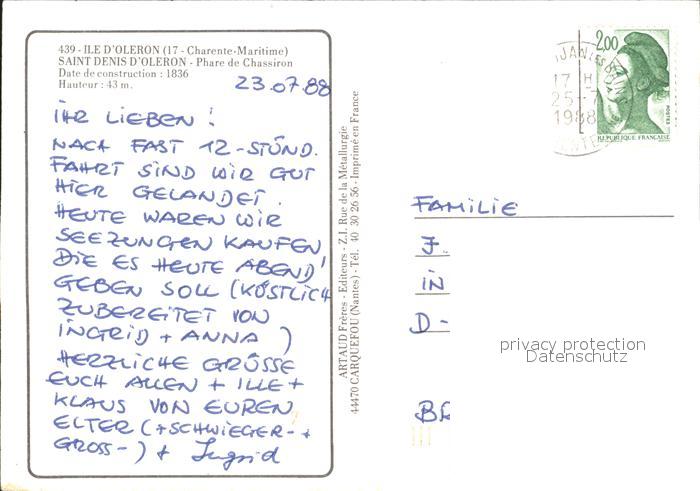 439 - ILE D'OLERON (17 - Charente-Maritime)
SAINT DENIS D'OLERON - Phare de Chassiron
Date de construction : 1836
Hauteur : 43 m.
23.07.88
IHR LIEBEN !
NACH FAST 12-STÜND.
FAHRT SIND WIR GUT
HIER GELANDET.
HEUTE WAREN WIR
SEEZUNGEN KAUFEN,
DIE ES HEUTE ABEND
GEBEN SOLL (KÖSTLICH
ZUBEREITET VON
INGRID + ANNA )
HERZLICHE GRÜSSE
EUCH ALLEN + ILLE +
KLAUS VON EUREN
ELTER (+SCHWIEGER- +
GROSS-) + Ingrid
ARTAUD Frères - Editeurs - Z.I. Rue de la Métallurgie
44470 CARQUEFOU (Nantes) - Tél. 40 30 26 56 - Imprimé en France
2,00
POSTES
REPUBLIQUE FRANÇAISE
17 H
25-7
1988
FAMILIE
J.
IN
D-
privacy protection
Datenschutz